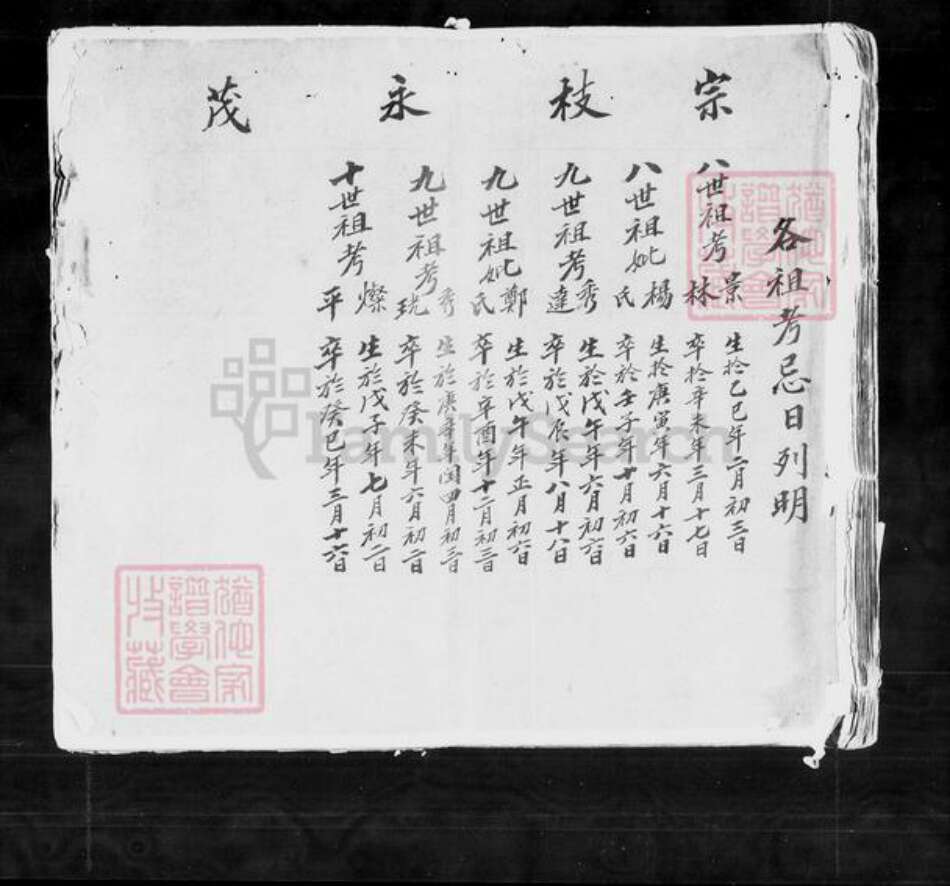 宗枝永茂
各祖考忌日列明
八世祖考景林 生於乙巳年二月初三日 卒於辛未年三月十七日
八世祖妣楊氏 生於庚寅年六月十六日 卒於壬子年十月初六日
九世祖考秀達 生於戊午年六月初六日 卒於戊辰年八月十八日
九世祖妣鄭氏 生於戊午年正月初六日 卒於辛酉年十二月初三日
九世祖考秀珖 生於庚年閏四月初三日 卒於癸未年六月初二日
十世祖考燦平 生於戊子年七月初二日 卒於癸巳年三月十六日
譜學會
譜學會
FamilySearch